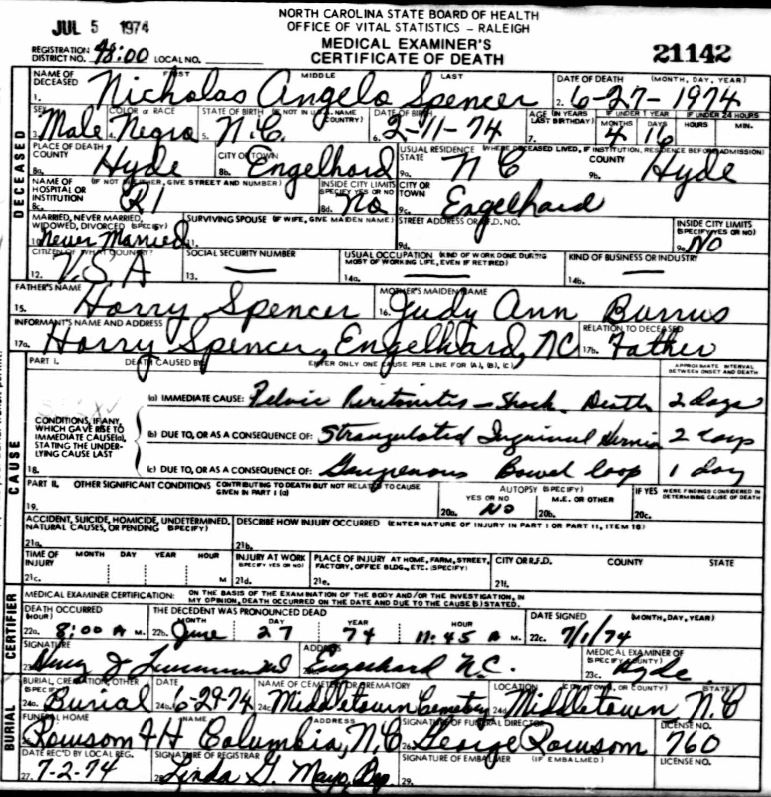 NORTH CAROLINA STATE BOARD OF HEALTH
OFFICE OF VITAL STATISTICS - RALEIGH
JUL 5 1974
MEDICAL EXAMINER'S
CERTIFICATE OF DEATH
REGISTRATION DISTRICT NO. 48:00 LOCAL NO.
21142
DECEASED
1. NAME OF DECEASED FIRST MIDDLE LAST Nicholas Angelo Spencer 2. DATE OF DEATH (MONTH, DAY, YEAR) 6-27-1974
3. SEX Male 4. COLOR or RACE Negro 5. STATE OF BIRTH (IF NOT IN U.S.A. NAME COUNTRY) N.C. 6. DATE OF BIRTH 2-11-74 7. AGE (IN YEARS LAST BIRTHDAY) IF UNDER 1 YEAR MONTHS 4 DAYS 16 IF UNDER 24 HOURS HOURS MIN.
PLACE OF DEATH 8a. COUNTY Hyde 8b. CITY OR TOWN Engelhard USUAL RESIDENCE (WHERE DECEASED LIVED, IF INSTITUTION, RESIDENCE BEFORE ADMISSION) 9a. STATE N C 9b. COUNTY Hyde
8c. NAME OF HOSPITAL OR INSTITUTION (IF NOT EITHER, GIVE STREET AND NUMBER) R1 8d. INSIDE CITY LIMITS (SPECIFY YES OR NO) No 9c. CITY OR TOWN Engelhard
10. MARRIED, NEVER MARRIED, WIDOWED, DIVORCED (SPECIFY) Never Married 11. SURVIVING SPOUSE (IF WIFE, GIVE MAIDEN NAME) 9d. STREET ADDRESS OR R.F.D. NO. 9e. INSIDE CITY LIMITS (SPECIFY YES OR NO) NO
12. CITIZEN OF WHAT COUNTRY? U.S.A 13. SOCIAL SECURITY NUMBER — 14a. USUAL OCCUPATION (KIND OF WORK DONE DURING MOST OF WORKING LIFE, EVEN IF RETIRED) — 14b. KIND OF BUSINESS OR INDUSTRY —
15. FATHER'S NAME Harry Spencer 16. MOTHER'S MAIDEN NAME Judy Ann Burrus
17a. INFORMANT'S NAME AND ADDRESS Harry Spencer, Engelhard, NC 17b. RELATION TO DECEASED Father
CAUSE
PART I. DEATH CAUSED BY: ENTER ONLY ONE CAUSE PER LINE FOR (A), (B), (C) APPROXIMATE INTERVAL BETWEEN ONSET AND DEATH
(a) IMMEDIATE CAUSE: Pelvic Peritonitis – Shock. Death 2 days
CONDITIONS, IF ANY, WHICH GAVE RISE TO IMMEDIATE CAUSE(a), STATING THE UNDERLYING CAUSE LAST
(b) DUE TO, OR AS A CONSEQUENCE OF: Strangulated Inguinal Hernia 2 days
18. (c) DUE TO, OR AS A CONSEQUENCE OF: Gangrenous Bowel loop 1 day
19. PART II. OTHER SIGNIFICANT CONDITIONS CONTRIBUTING TO DEATH BUT NOT RELATED TO CAUSE GIVEN IN PART I (a) AUTOPSY (SPECIFY) 20a. YES OR NO NO 20b. M.E. OR OTHER 20c. IF YES WERE FINDINGS CONSIDERED IN DETERMINING CAUSE OF DEATH
21a. ACCIDENT, SUICIDE, HOMICIDE, UNDETERMINED, NATURAL CAUSES, OR PENDING (SPECIFY) 21b. DESCRIBE HOW INJURY OCCURRED (ENTER NATURE OF INJURY IN PART I OR PART II, ITEM 18)
21c. TIME OF INJURY MONTH DAY YEAR HOUR M 21d. INJURY AT WORK (SPECIFY YES OR NO) 21e. PLACE OF INJURY AT HOME, FARM, STREET, FACTORY, OFFICE BLDG., ETC. (SPECIFY) 21f. CITY OR R.F.D. COUNTY STATE
CERTIFIER
MEDICAL EXAMINER CERTIFICATION: ON THE BASIS OF THE EXAMINATION OF THE BODY AND/OR THE INVESTIGATION, IN MY OPINION, DEATH OCCURRED ON THE DATE AND DUE TO THE CAUSE(S) STATED.
22a. DEATH OCCURRED (HOUR) 8:00 A M. 22b. THE DECEDENT WAS PRONOUNCED DEAD MONTH June DAY 27 YEAR 74 HOUR 11:45 A M. 22c. DATE SIGNED (MONTH, DAY, YEAR) 7/1/74
SIGNATURE ADDRESS Engelhard N.C. 23c. MEDICAL EXAMINER OF (SPECIFY COUNTY) Hyde
BURIAL
24a. BURIAL, CREMATION, OTHER (SPECIFY) Burial 24b. DATE 6-29-74 24c. NAME OF CEMETERY OR CREMATORY Middletown Cemetery 24d. LOCATION (CITY, TOWN, OR COUNTY) STATE Middletown N.C
25. FUNERAL HOME NAME ADDRESS Rowsom F H Columbia, N.C 26. SIGNATURE OF FUNERAL DIRECTOR George Rowsom LICENSE NO. 760
27. DATE REC'D BY LOCAL REG. 7-2-74 28. SIGNATURE OF REGISTRAR Linda G. Mayo, Dep. 29. SIGNATURE OF EMBALMER (IF EMBALMED) LICENSE NO.